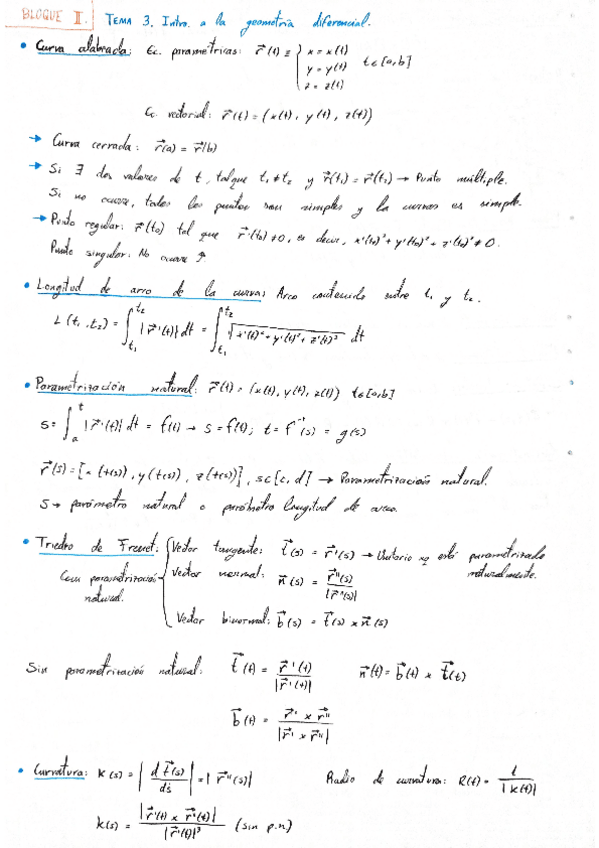 BLOQUE II. TEMA 3. Intro. a la geometría diferencial.
• Curva alabeada: Ec. paramétricas: r⃗(t) ≡ { x = x(t)
y = y(t) t ∈ [a,b]
z = z(t)
Ec. vectorial: r⃗(t) = (x(t), y(t), z(t))
→ Curva cerrada: r⃗(a) = r⃗(b)
→ Si ∃ dos valores de t, tal que t₁ ≠ t₂ y r⃗(t₁) = r⃗(t₂) → Punto múltiple.
Si no ocurre, todos los puntos son simples y la curva es simple.
→ Punto regular: r⃗(t₀) tal que r⃗'(t₀) ≠ 0, es decir, x'(t₀)² + y'(t₀)² + z'(t₀)² ≠ 0.
Punto singular: No ocurre ↑
• Longitud de arco de la curva: Arco contenido entre t₁ y t₂.
L(t₁, t₂) = ∫_{t₁}^{t₂} |r⃗'(t)| dt = ∫_{t₁}^{t₂} √(x'(t)² + y'(t)² + z'(t)²) dt
• Parametrización natural: r⃗(t) = (x(t), y(t), z(t)) t ∈ [a,b]
s = ∫_a^t |r⃗'(t)| dt = f(t) → s = f(t); t = f⁻¹(s) = g(s)
r⃗(s) = [x(t(s)), y(t(s)), z(t(s))], s ∈ [c, d] → Parametrización natural.
s → parámetro natural o parámetro longitud de arco.
• Triedro de Frenet: { Vector tangente: t⃗(s) = r⃗'(s) → Unitario xq está parametrizado naturalmente.
Con parametrización natural. Vector normal: n⃗(s) = r⃗''(s) / |r⃗''(s)|
Vector binormal: b⃗(s) = t⃗(s) x n⃗(s)
Sin parametrización natural: t⃗(t) = r⃗'(t) / |r⃗'(t)| n⃗(t) = b⃗(t) x t⃗(t)
b⃗(t) = r⃗' x r⃗'' / |r⃗' x r⃗''|
• Curvatura: K(s) = |dt⃗(s) / ds| = |r⃗''(s)| Radio de curvatura: R(t) = 1 / |K(t)|
K(s) = |r⃗'(t) x r⃗''(t)| / |r⃗'(t)|³ (sin p.n)